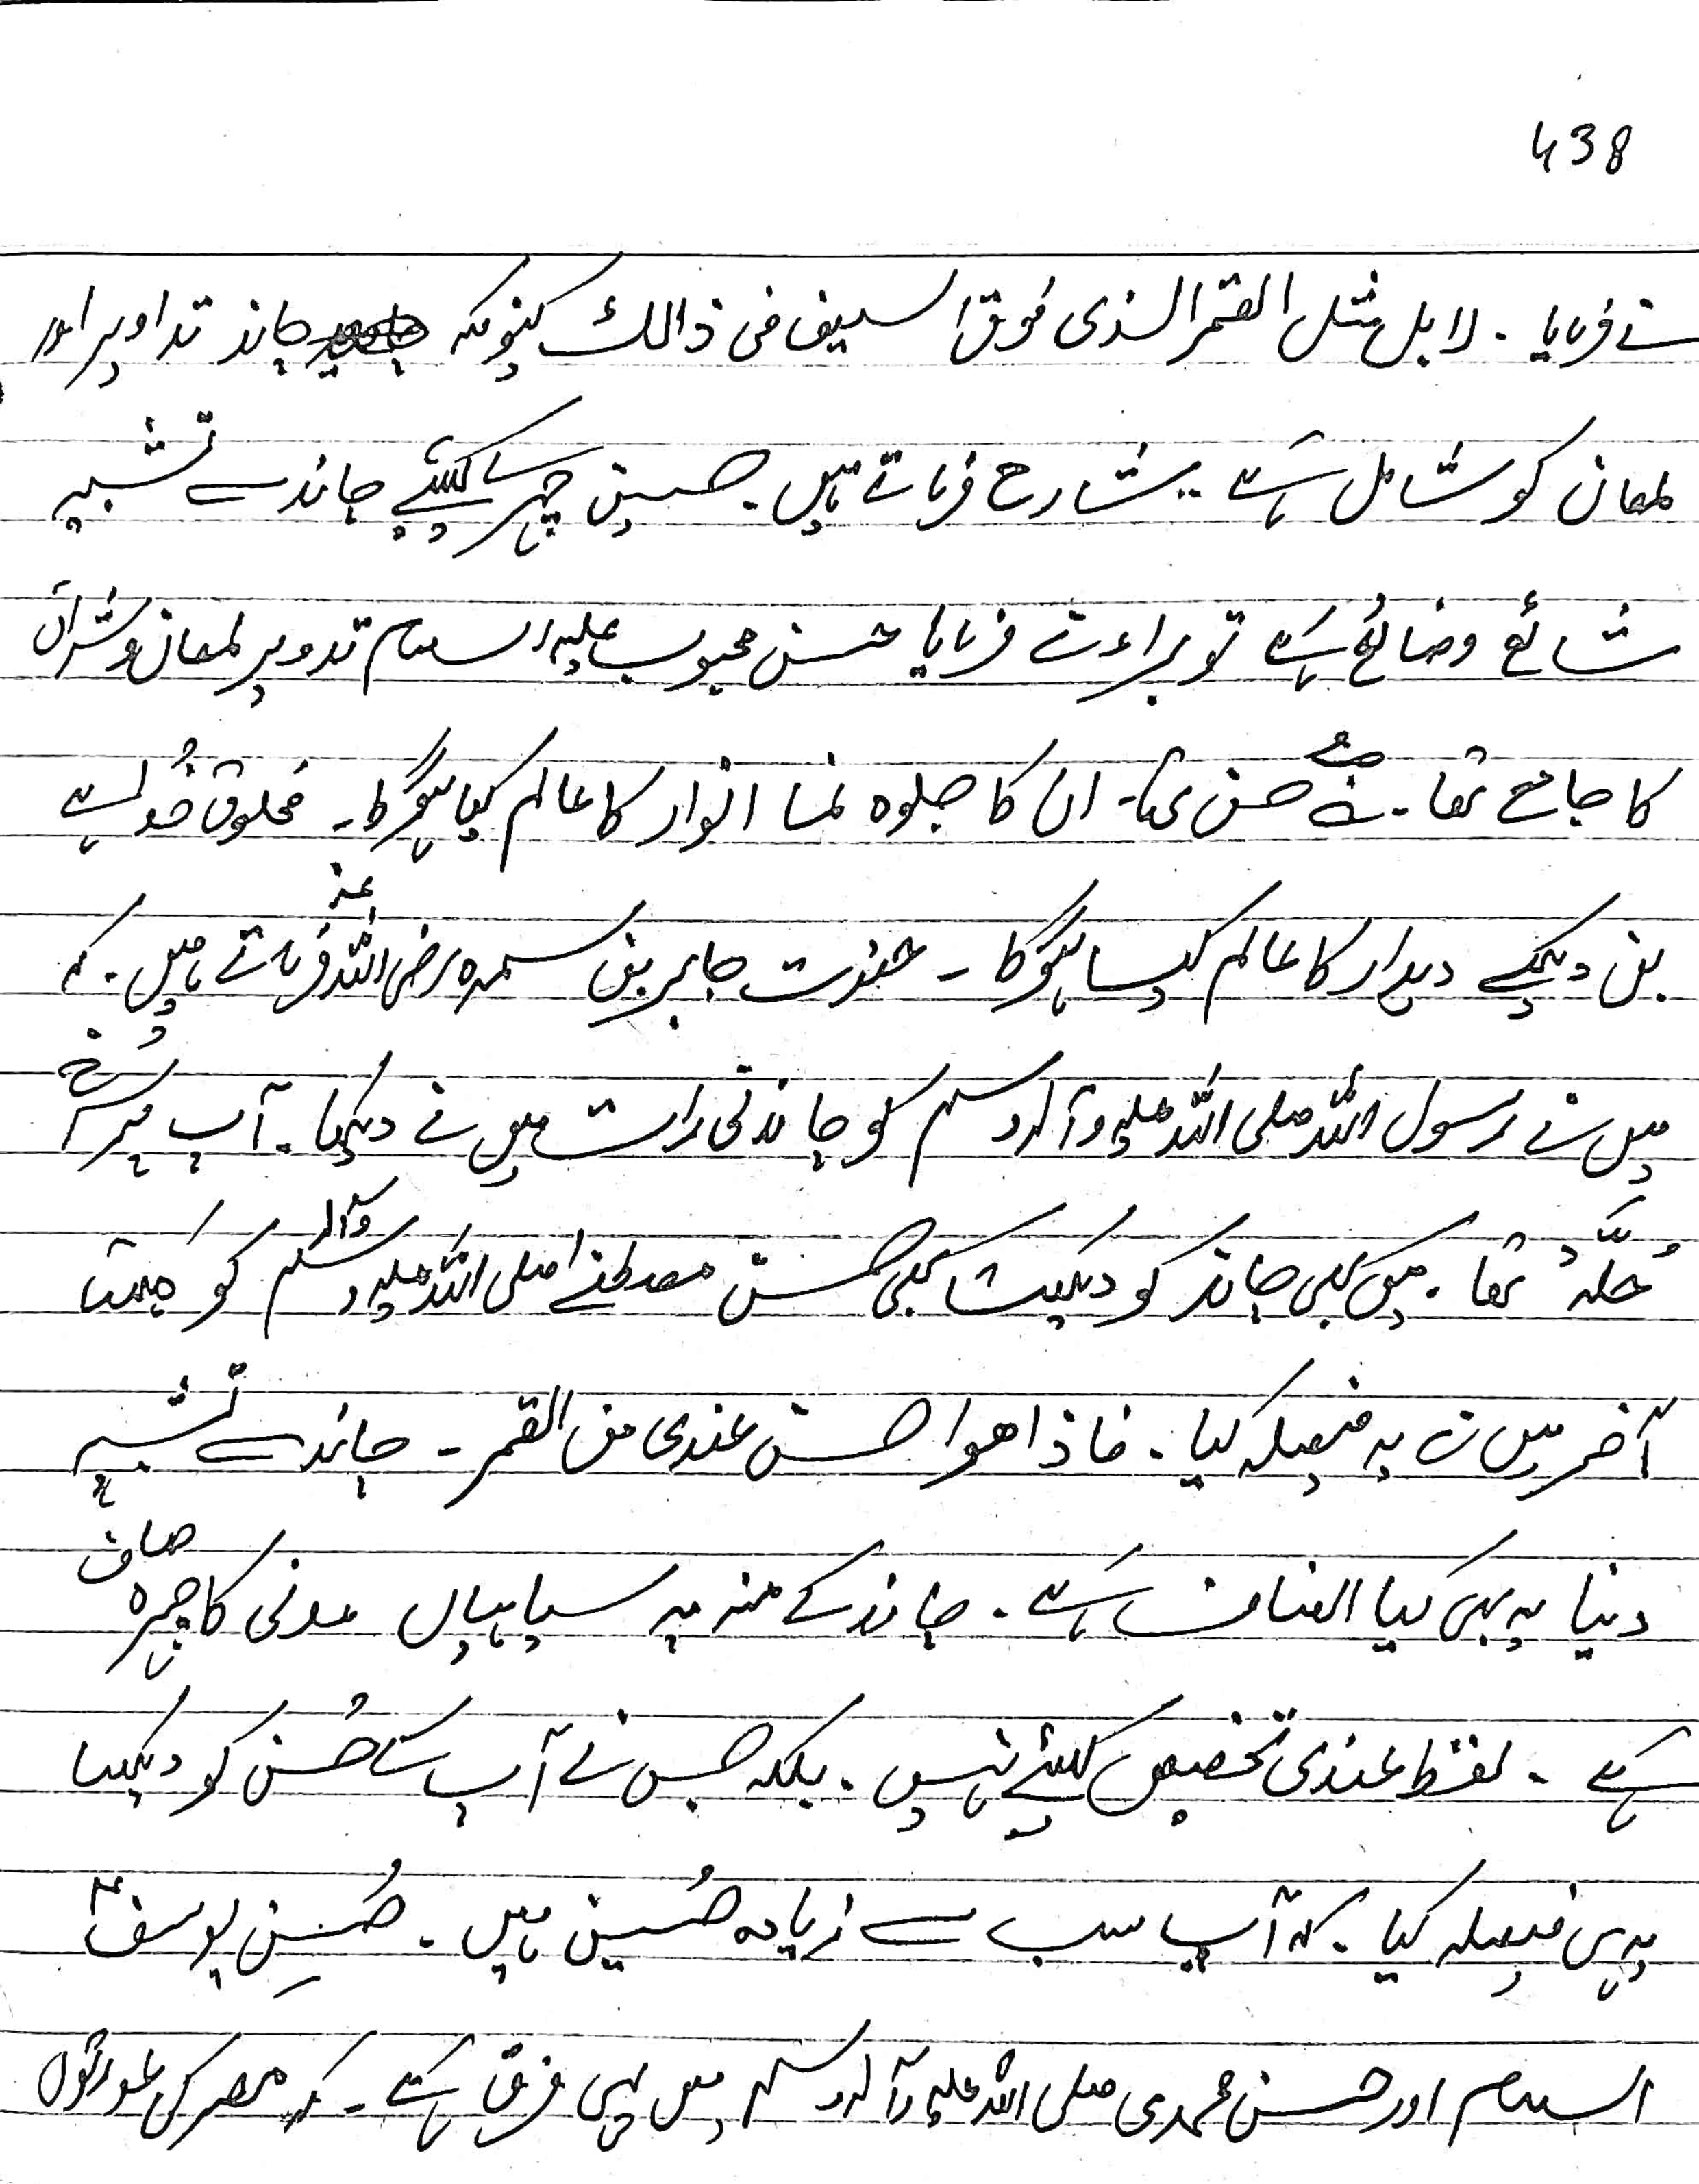 438
نے فرمایا ۔ لا بل مثل القمر الذی فوق السیف فی ذالک کیونکہ چاند تداویر اور
لمعان کو شامل ہے ۔ شارح فرماتے ہیں ۔ حسین چہرے کیلئے چاند سے تشبیہ
شائع وضائع ہے تو براء نے فرمایا حسن محبوب علیہ السلام تدویر لمعان و اشراق
کا جامع تھا ۔ حسن تھا ۔ ان کا جلوہ نما انوار کا عالم کیا ہوگا ۔ مخلوق خدا ہے
بن دیکھے دیدار کا عالم کیسا ہوگا ۔ حضرت جابر بن سمرہ رضی اللہ عنہ فرماتے ہیں ۔ کہ
میں نے رسول اللہ صلی اللہ علیہ وآلہ وسلم کو چاندنی رات میں نے دیکھا ۔ آپ پر سرخ
حُلّہ تھا ۔ میں کبھی چاند کو دیکھتا کبھی حسن مصطفےٰ صلی اللہ علیہ وآلہ وسلم کو دیکھتا
آخر میں نے یہ فیصلہ کیا ۔ فاذا ھو احسن عندی من القمر ۔ چاند سے تشبیہ
دینا یہ بھی کیا انصاف ہے ۔ چاند کے منہ پہ سیاہیاں مدنی کا چہرہ صاف
ہے ۔ لفظ عندی تخصیص کیلئے نہیں ۔ بلکہ جس نے آپ کے حُسن کو دیکھا
یہی فیصلہ کیا ۔ کہ آپ سب سے زیادہ حسین ہیں ۔ حُسنِ یوسف علیہ
السلام اور حسن محمدی صلی اللہ علیہ وآلہ وسلم میں یہی فرق ہے ۔ کہ مصر کی عورتوں